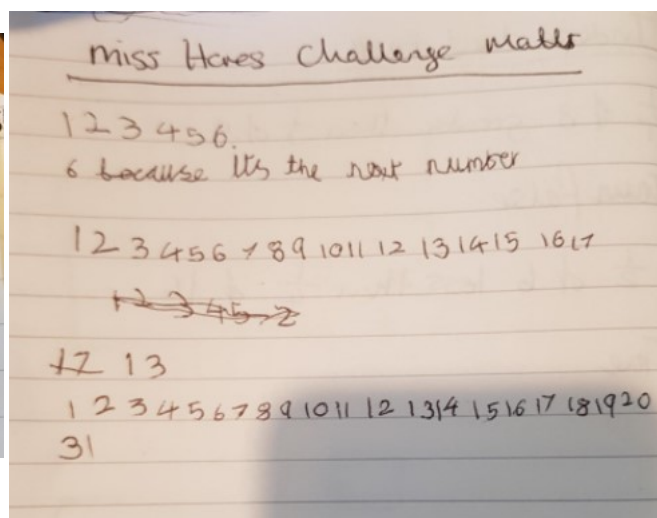 Miss Hares Challenge Maths
1 2 3 4 5 6.
6 because Its the next number
1 2 3 4 5 6 7 8 9 10 11 12 13 14 15 16 17
1 2 3 4 5 2
12 13
1 2 3 4 5 6 7 8 9 10 11 12 13 14 15 16 17 18 19 20
31